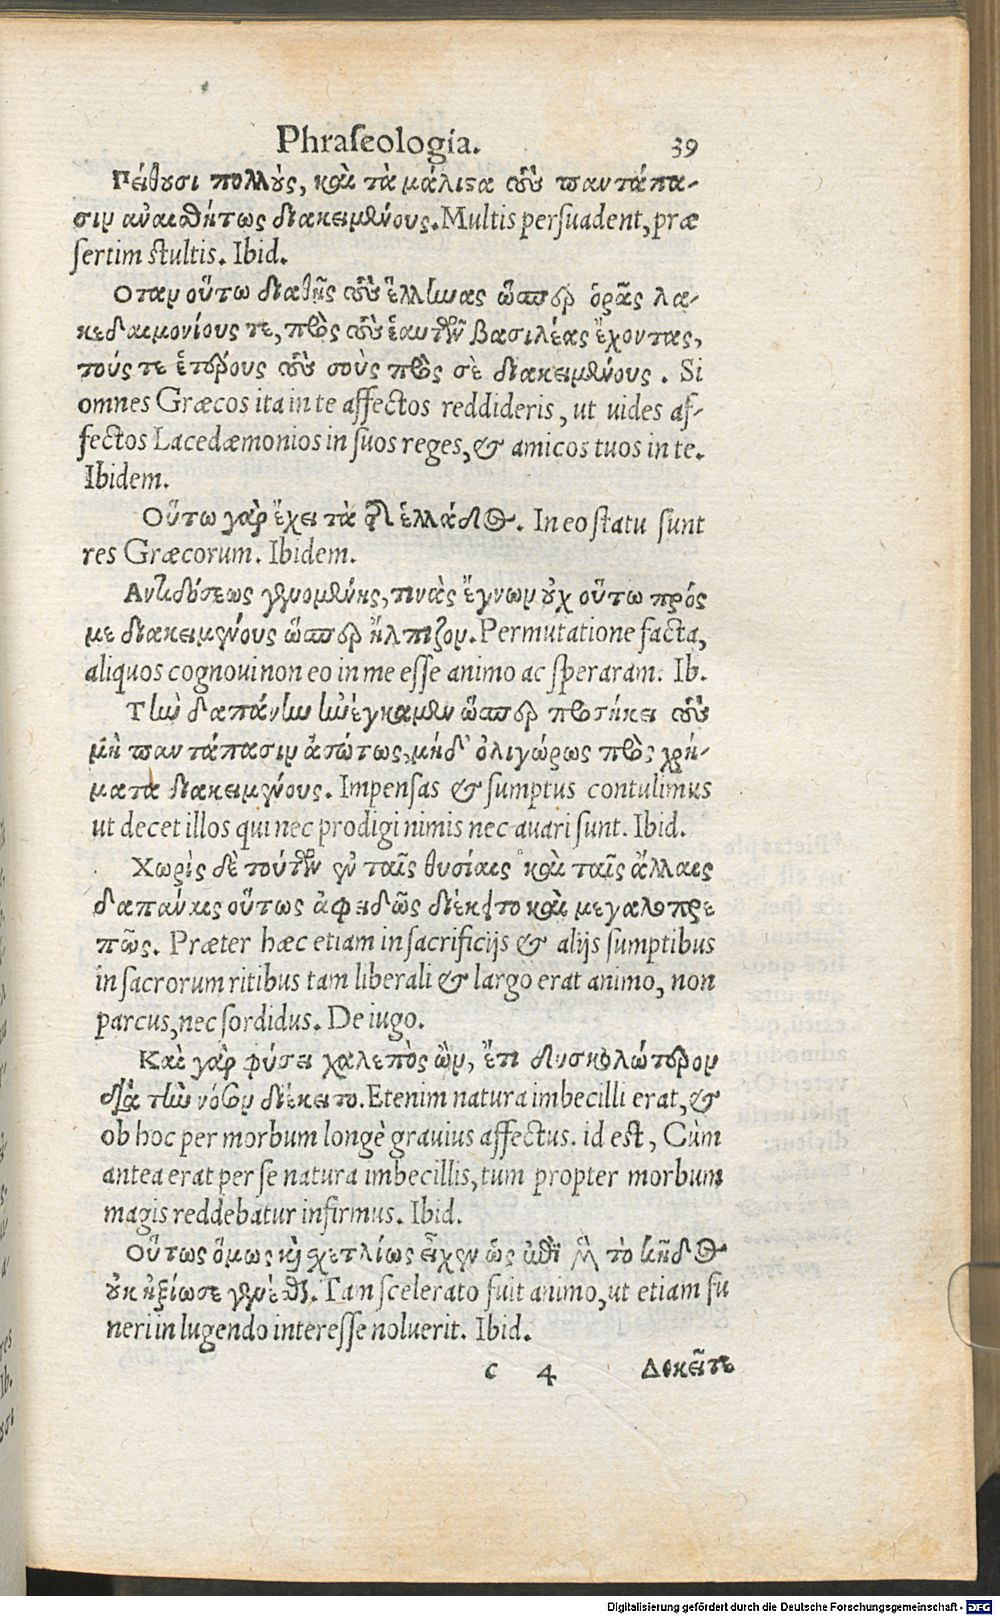 Phraseologia. 39
Πείθουσι πολλοὺς, καὶ τὰ μάλιστα τοὺς παντάπα-
σιν ἀναισθήτως διακειμένους. Multis persuadent, præ
sertim stultis. Ibid.
Οταν οὕτω διαθῇς τοὺς ἕλληνας ὥσπερ ὁρᾷς λα-
κεδαιμονίους τε, πρὸς τοὺς ἑαυτῶν βασιλέας ἔχοντας,
τούς τε ἑταίρους τοὺς σοὺς πρὸς σὲ διακειμένους. Si
omnes Græcos ita in te affectos reddideris, ut uides af-
fectos Lacedæmonios in suos reges, & amicos tuos in te.
Ibidem.
Οὕτω γὰρ ἔχει τὰ τῆς ἑλλάδος. In eo statu sunt
res Græcorum. Ibidem.
Αντιδόσεως γενομένης, τινὰς ἔγνων οὐχ οὕτω πρός
με διακειμένους ὥσπερ ἤλπιζον. Permutatione facta,
aliquos cognoui non eo in me esse animo ac speraram. Ib.
Τὴν δαπάνην ἠνέγκαμεν ὥσπερ προσήκει τοὺς
μὴ παντάπασιν ἀσώτως, μηδ' ὀλιγώρως πρὸς χρή-
ματα διακειμένους. Impensas & sumptus contulimus
ut decet illos qui nec prodigi nimis nec auari sunt. Ibid.
Χωρὶς δὲ τούτων ἐν ταῖς θυσίαις καὶ ταῖς ἄλλαις
δαπάναις οὕτως ἀφειδῶς διέκειτο καὶ μεγαλοπρε
πῶς. Præter hæc etiam in sacrificijs & alijs sumptibus
in sacrorum ritibus tam liberali & largo erat animo, non
parcus, nec sordidus. De iugo.
Καὶ γὰρ φύσει χαλεπὸς ὢν, ἔτι δυσκολώτερον
διὰ τὴν νόσον διέκειτο. Etenim natura imbecilli erat, &
ob hoc per morbum longè grauius affectus. id est, Cùm
antea erat per se natura imbecillis, tum propter morbum
magis reddebatur infirmus. Ibid.
Οὕτως ὅμως καὶ σχετλίως εἶχεν ὡς ἐπὶ τὸ κῆδος
οὐκ ἠξίωσε γενέσθαι. Tam scelerato fuit animo, ut etiam fu
neri in lugendo interesse noluerit. Ibid.
c 4 Δοκεῖτε
Digitalisierung gefördert durch die Deutsche Forschungsgemeinschaft - DFG